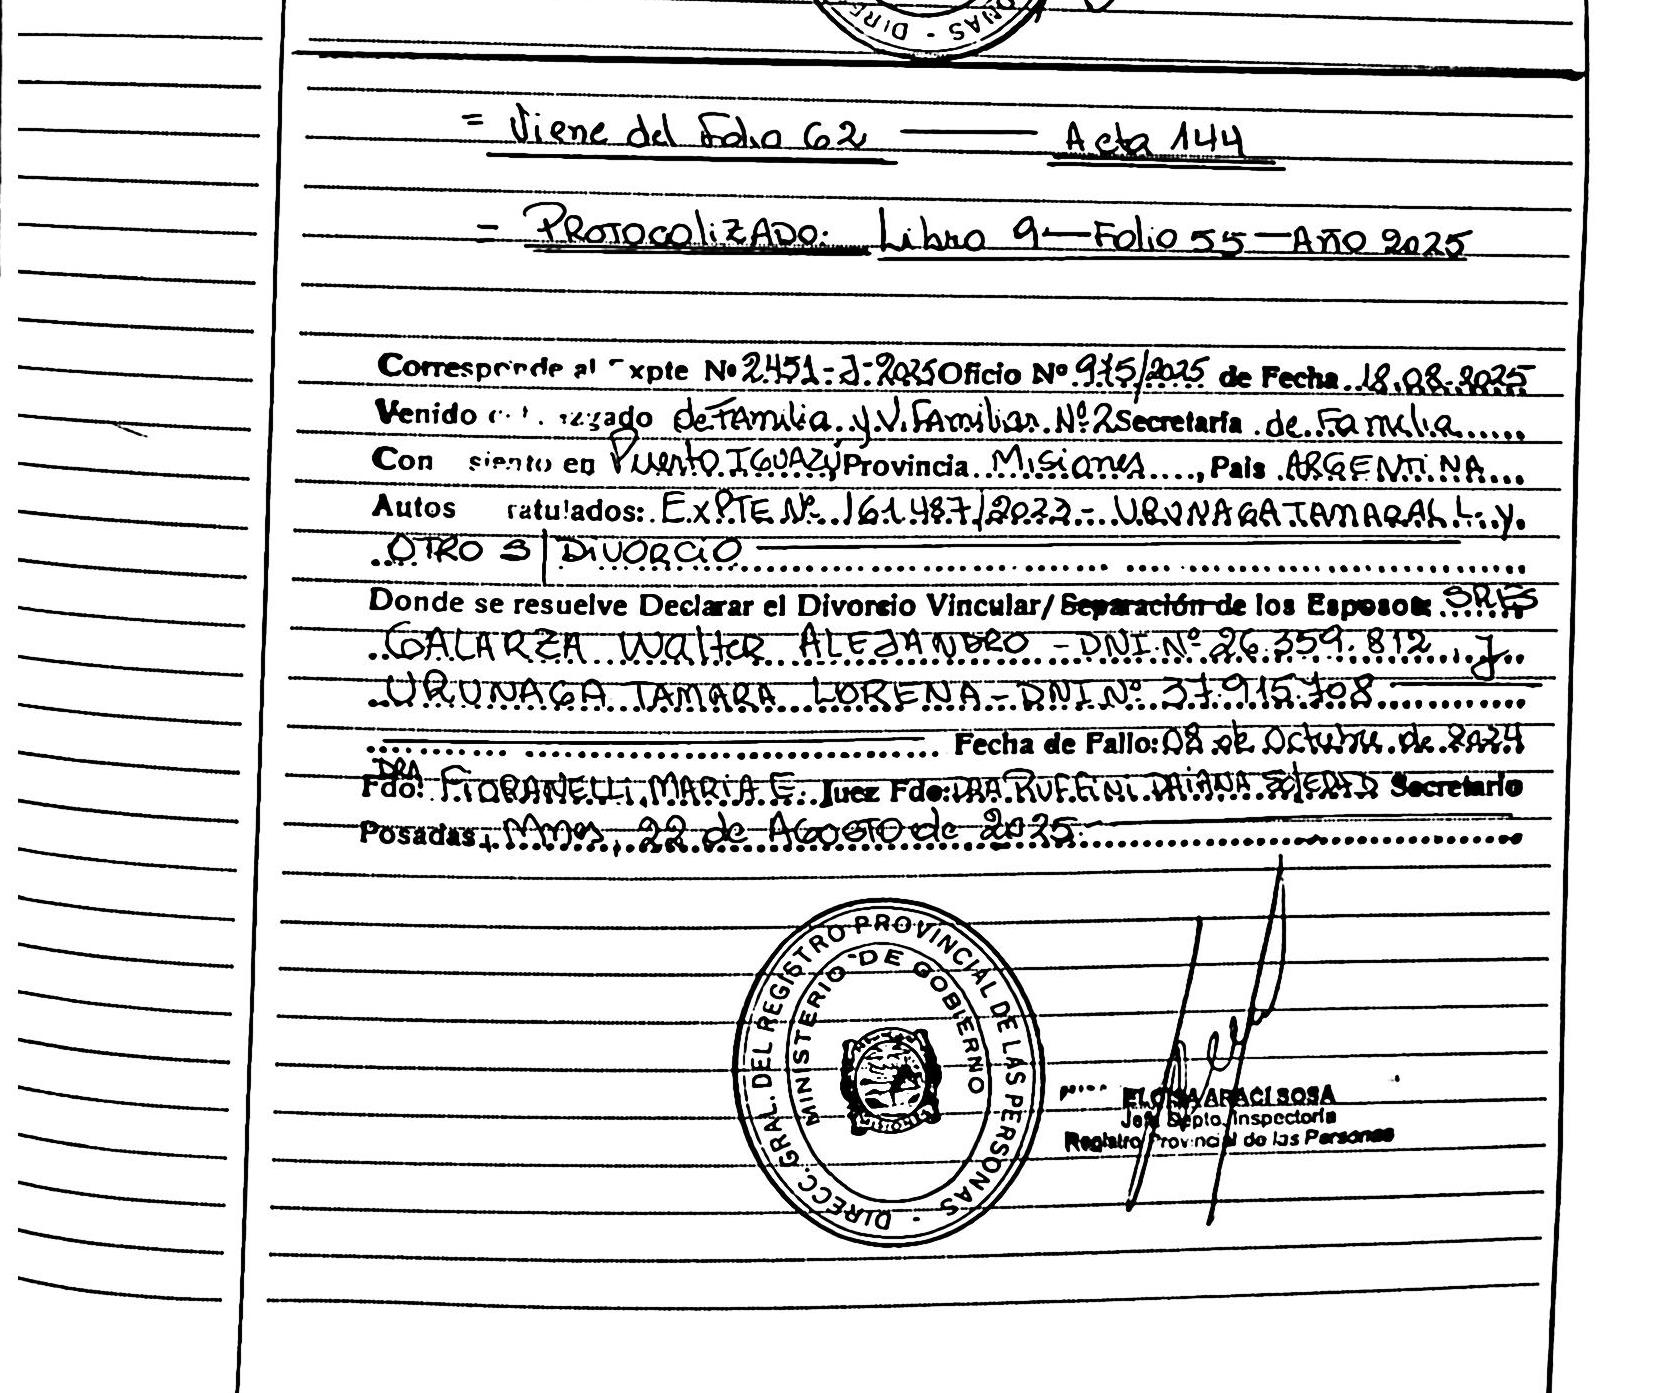 DIRE - ONAS
= Viene del Folio 62 — Acta 144
= PROTOCOLIZADO: Libro 9 — Folio 55 — Año 2025
Corresponde al Expte Nº 2451-J-2025 Oficio Nº 975/2025 de Fecha 18.08.2025
Venido zgado de Familia y V. Familiar Nº 2 Secretaría de Familia
Con siento en Puerto IGUAZÚ Provincia Misiones, País ARGENTINA
Autos ratulados: EXPTE Nº 161.487/2023 - URUNAGA TAMARA L. y
OTRO S/ DIVORCIO
Donde se resuelve Declarar el Divorcio Vincular/ Separación de los Esposos: SRES
GALARZA Walter ALEJANDRO - DNI Nº 26.359.812 y
URUNAGA TAMARA LORENA - DNI Nº 37.915.708
Fecha de Fallo: 08 de Octubre de 2024
Fdo: DRA FIORANELLI, MARIA E. Juez Fdo: DRA RUFFINI DAIANA SOLEDAD Secretario
Posadas, Mnes, 22 de AGOSTO de 2025.
DIRECC. GRAL. DEL REGISTRO PROVINCIAL DE LAS PERSONAS -
MINISTERIO DE GOBIERNO
ELOISA ARACI SOSA
Jefa Depto. Inspectoría
Registro Provincial de las Personas